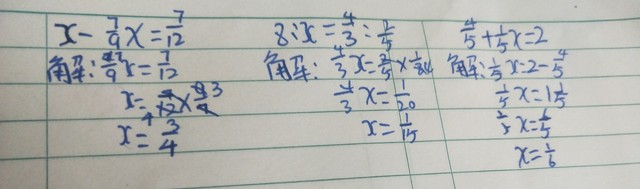 x - 7/9 x = 7/12
解: 2/9 x = 7/12
x = 7/12 × 9/2
x = 3/4
8 : x = 4/3 : 2/5
解: 4/3 x = 2/5 ×
4/3 x = 1/20
x = 1/15
4/5 + 1/5 x = 2
解: 1/5 x = 2 - 4/5
1/5 x = 1 1/5
1/5 x = 6/5
x = 1/6